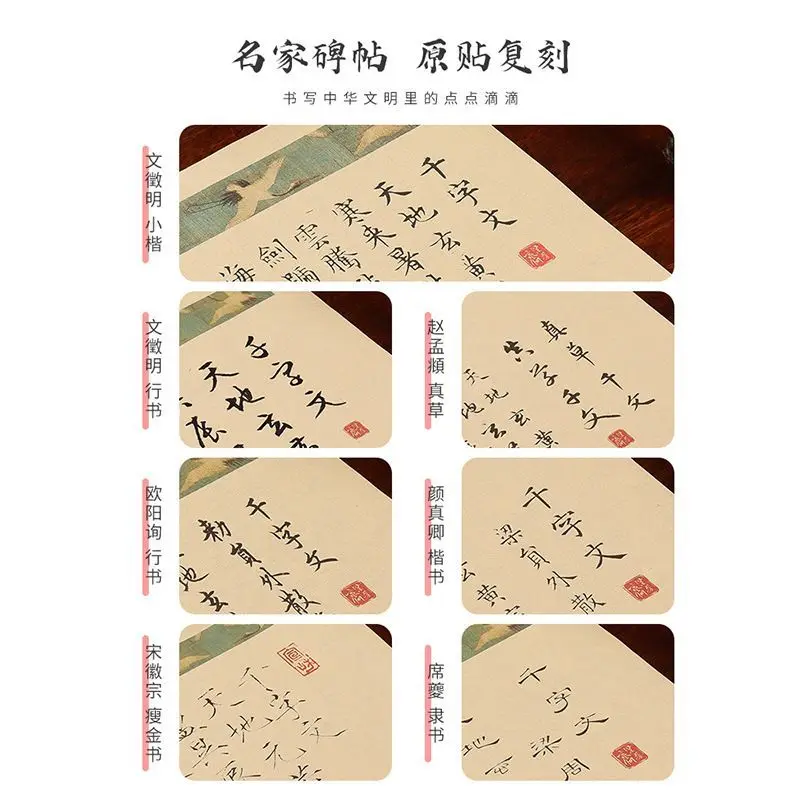 名家碑帖 原贴复刻
书写中华文明里的点点滴滴
文徵明 小楷
千字文
天地玄黃
寒來暑
雲騰
劍
海
文徵明 行书
千字文
天地玄
赵孟頫 真草
真草千文
真草千文
天地玄黃
欧阳询 行书
千字文
勅員外散
地玄
颜真卿 楷书
千字文
梁員外散
玄黃
宋徽宗 瘦金书
千字文
天地元
席夔 隶书
千字文
梁周
地